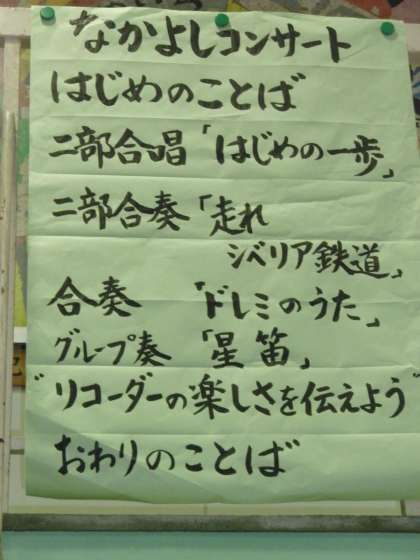 なかよしコンサート
はじめのことば
二部合唱「はじめの一歩」
二部合奏「走れ
シベリア鉄道」
合奏 「ドレミのうた」
グループ奏 「星笛」
"リコーダーの楽しさを伝えよう"
おわりのことば